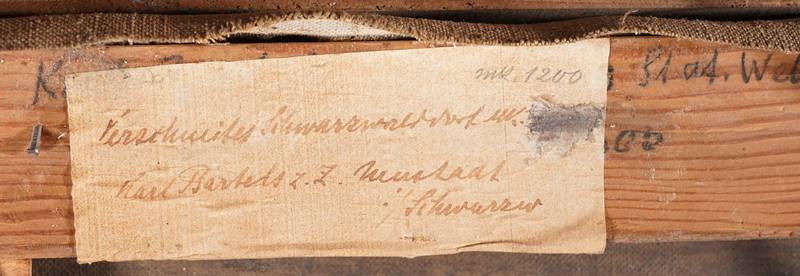 mk. 1200
Verschneites Schwarzwalddorf Mk.
Karl Bartels z. Z. Neustadt
i/ Schwarzw
Stat. Web